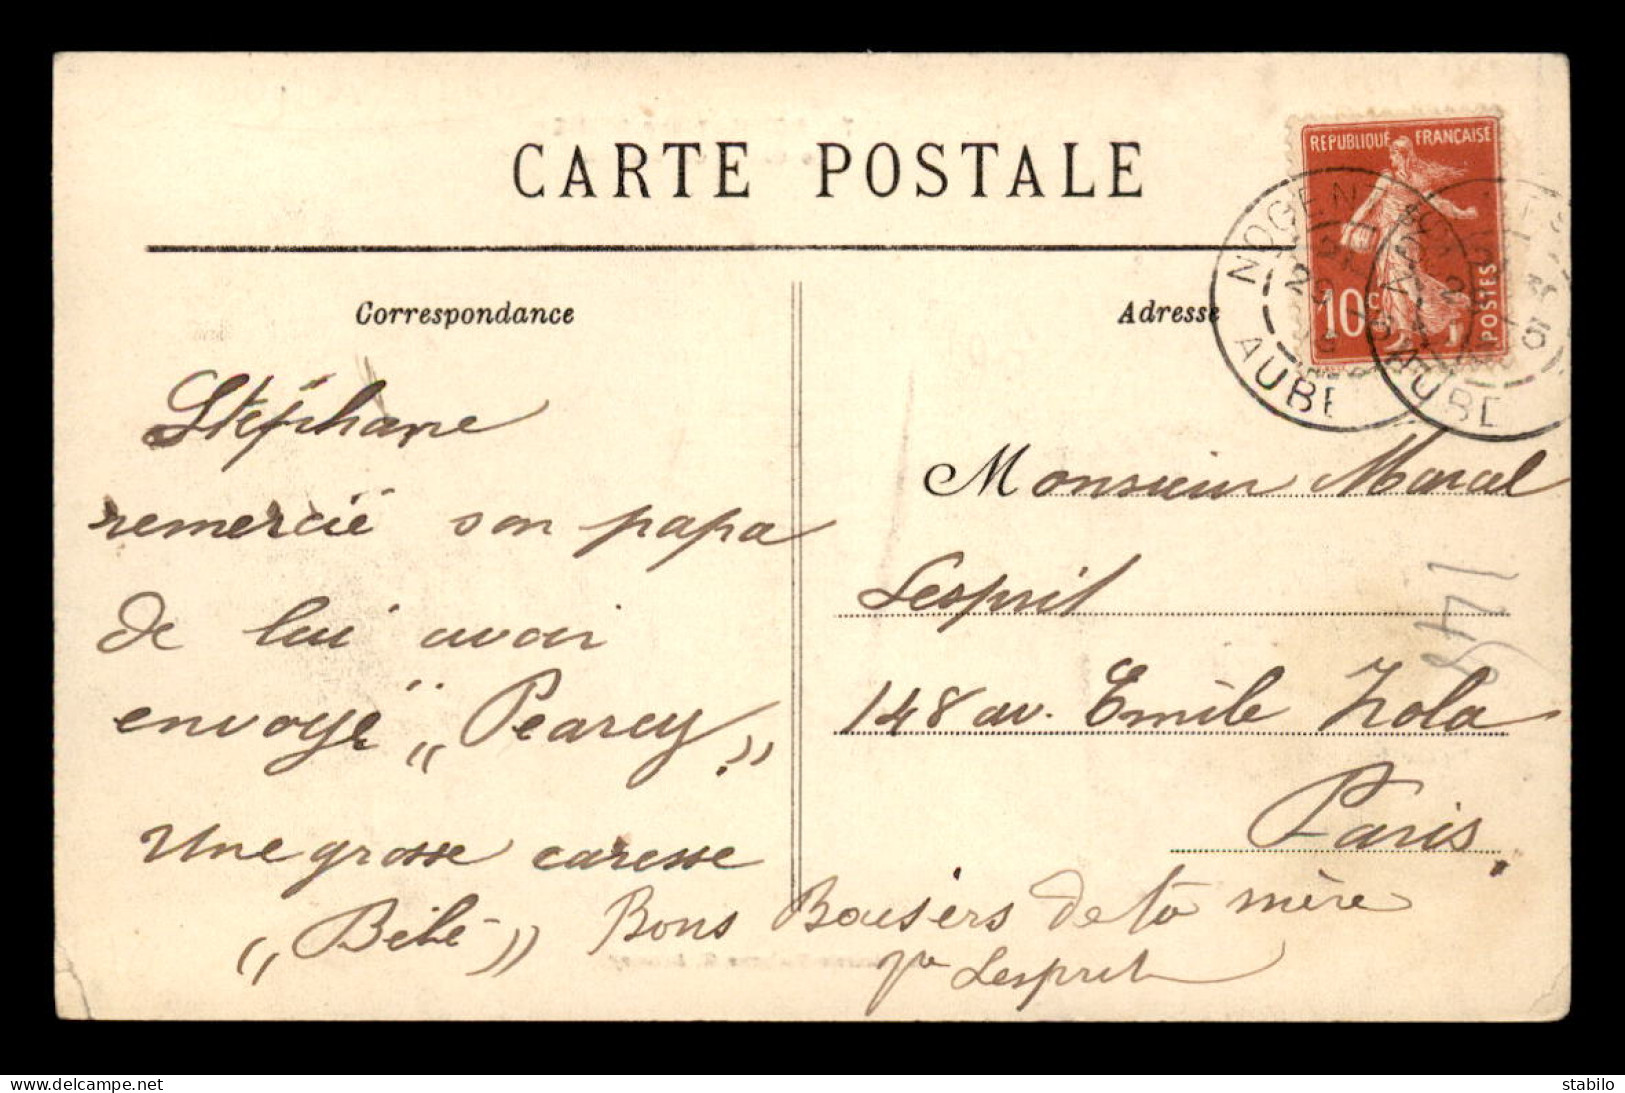 CARTE POSTALE
REPUBLIQUE FRANÇAISE
10c
POSTES
NOGENT
AUBE
AUBE
Correspondance
Adresse
Stéphane
remercie son papa
de lui avoir
envoyé „ Pearcy „.
Une grosse caresse
„ Bébé „
Bons Baisers de ta mère
Vve Lesprit
Monsieur Marcel
Lesprit
148 av. Emile Zola
Paris.
delcampe.net
stabilo